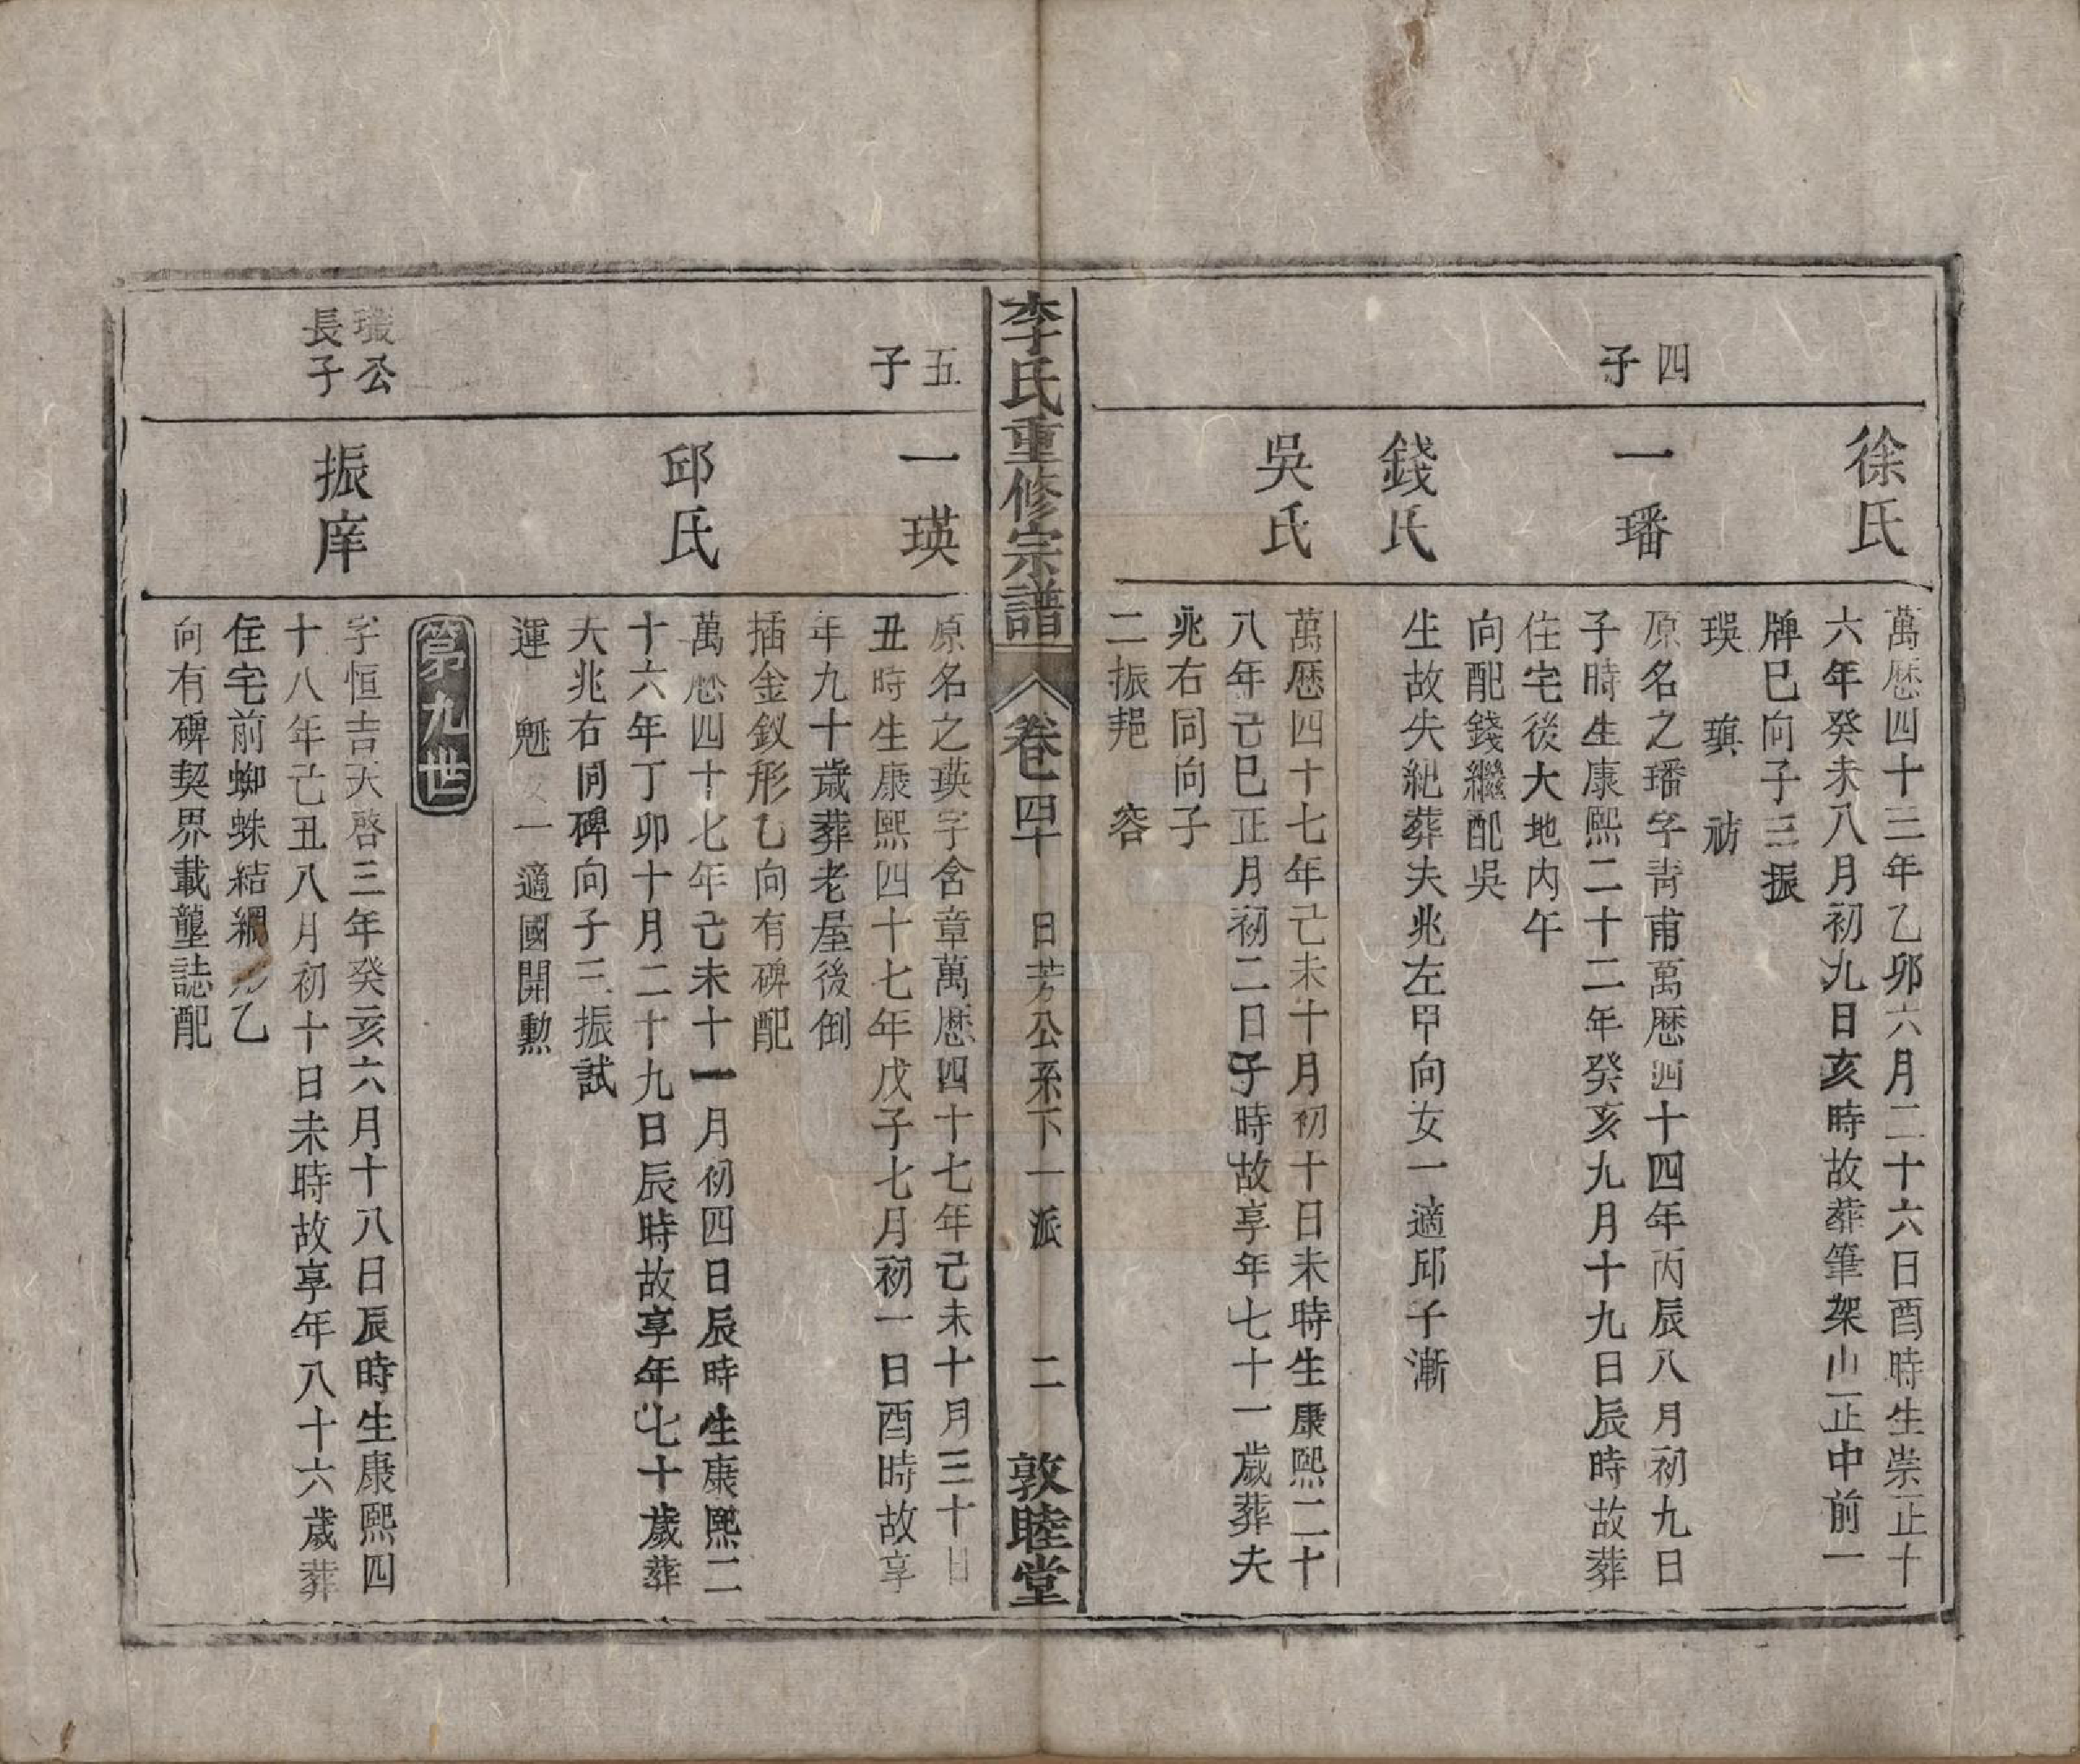 徐氏
萬厯四十三年乙卯六月二十六日酉時生崇正十
六年癸未八月初九日亥時故葬筆架山正中前一
牌巳向子三振
瑛 瑱 祊
四
子
一璠
原名之璠字靑甫萬厯四十四年丙辰八月初九日
子時生康熙二十二年癸亥九月十九日辰時故葬
住宅後大地内午
向配錢繼配吳
錢氏
生故失紀葬夫兆左甲向女一適邱子漸
吳氏
萬厯四十七年己未十月初十日未時生康熙二十
八年己巳正月初二日子時故享年七十一歲葬夫
兆右同向子
二振郒 容
李氏重修宗譜
卷四十
日芳公系下一派
二
敦睦堂
五
子
一瑛
原名之瑛字含章萬厯四十七年己未十月三十日
丑時生康熙四十七年戊子七月初一日酉時故享
年九十歲葬老屋後倒
插金釵形乙向有碑配
邱氏
萬厯四十七年己未十一月初四日辰時生康熙二
十六年丁卯十月二十九日辰時故享年七十歲葬
夫兆右同碑向子三振試
運 魁 女一適國開勲
第九世
公
長子
振庠
字恒吉天啓三年癸亥六月十八日辰時生康熙四
十八年己丑八月初十日未時故享年八十六歲葬
住宅前蜘蛛結網形乙
向有碑契界載塋誌配